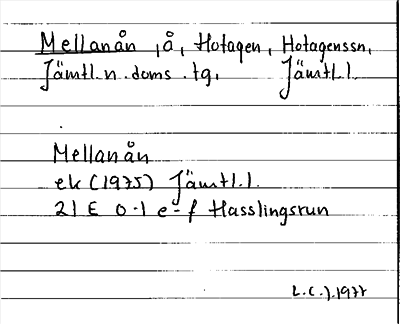 Mellanån, å, Hotagen, Hotagenssn,
Jämtl.n.doms.tg, Jämtl.l.
Mellanån
ek (1975) Jämtl.l.
21 E 0-1 e-f Hasslingsrun
L.C.J. 1977